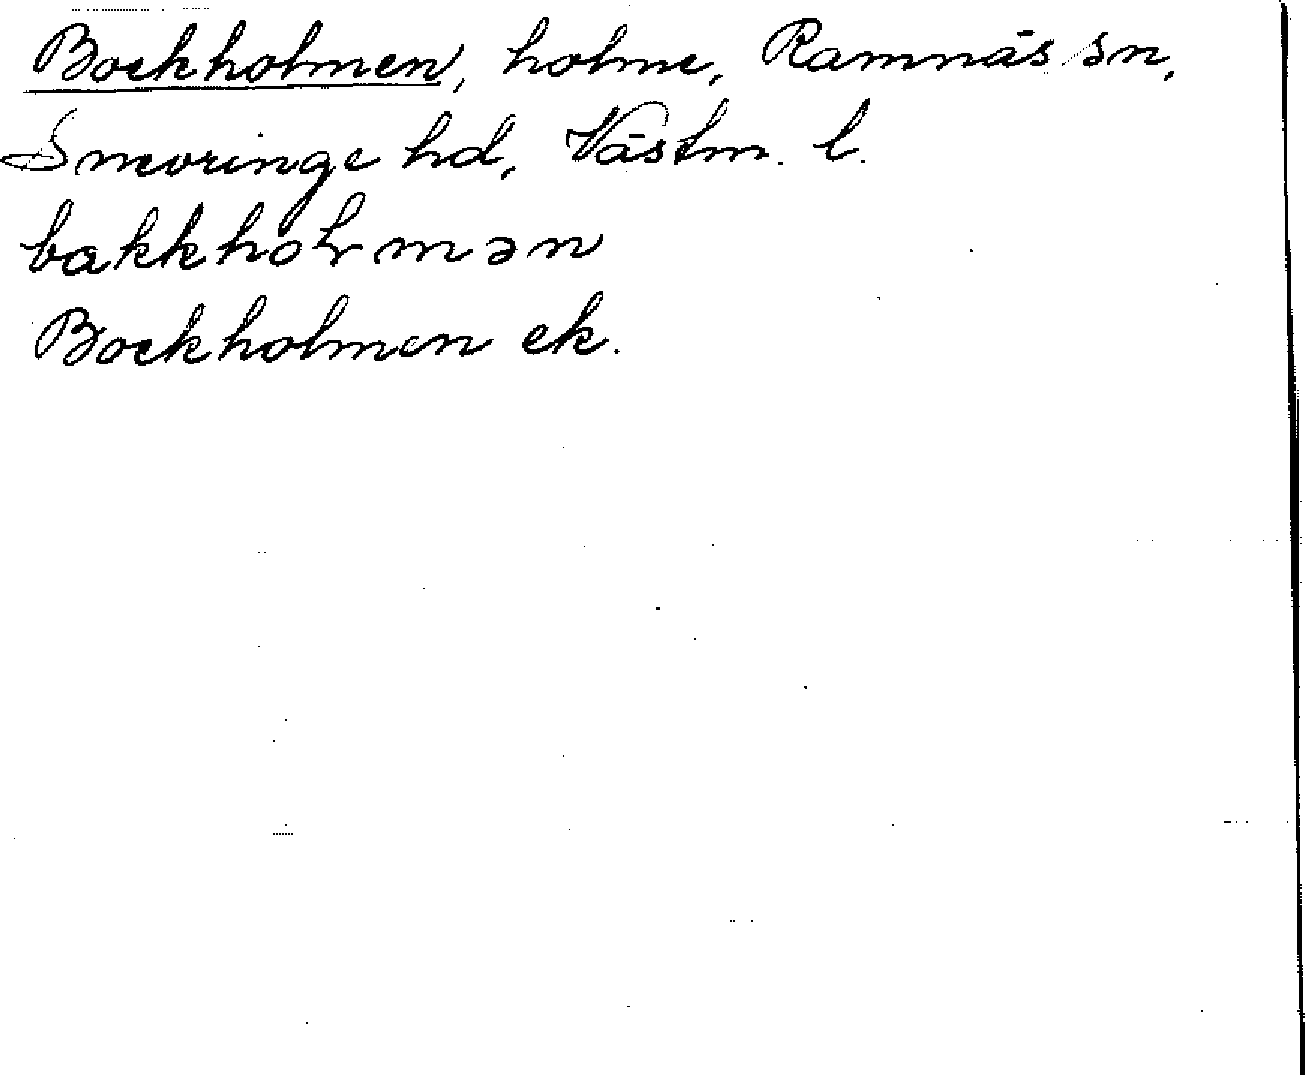 Bockholmen, holme, Ramnäs sn,
Snevringe hd, Västm. l.
bakkhoɫmən
Bockholmen ek.